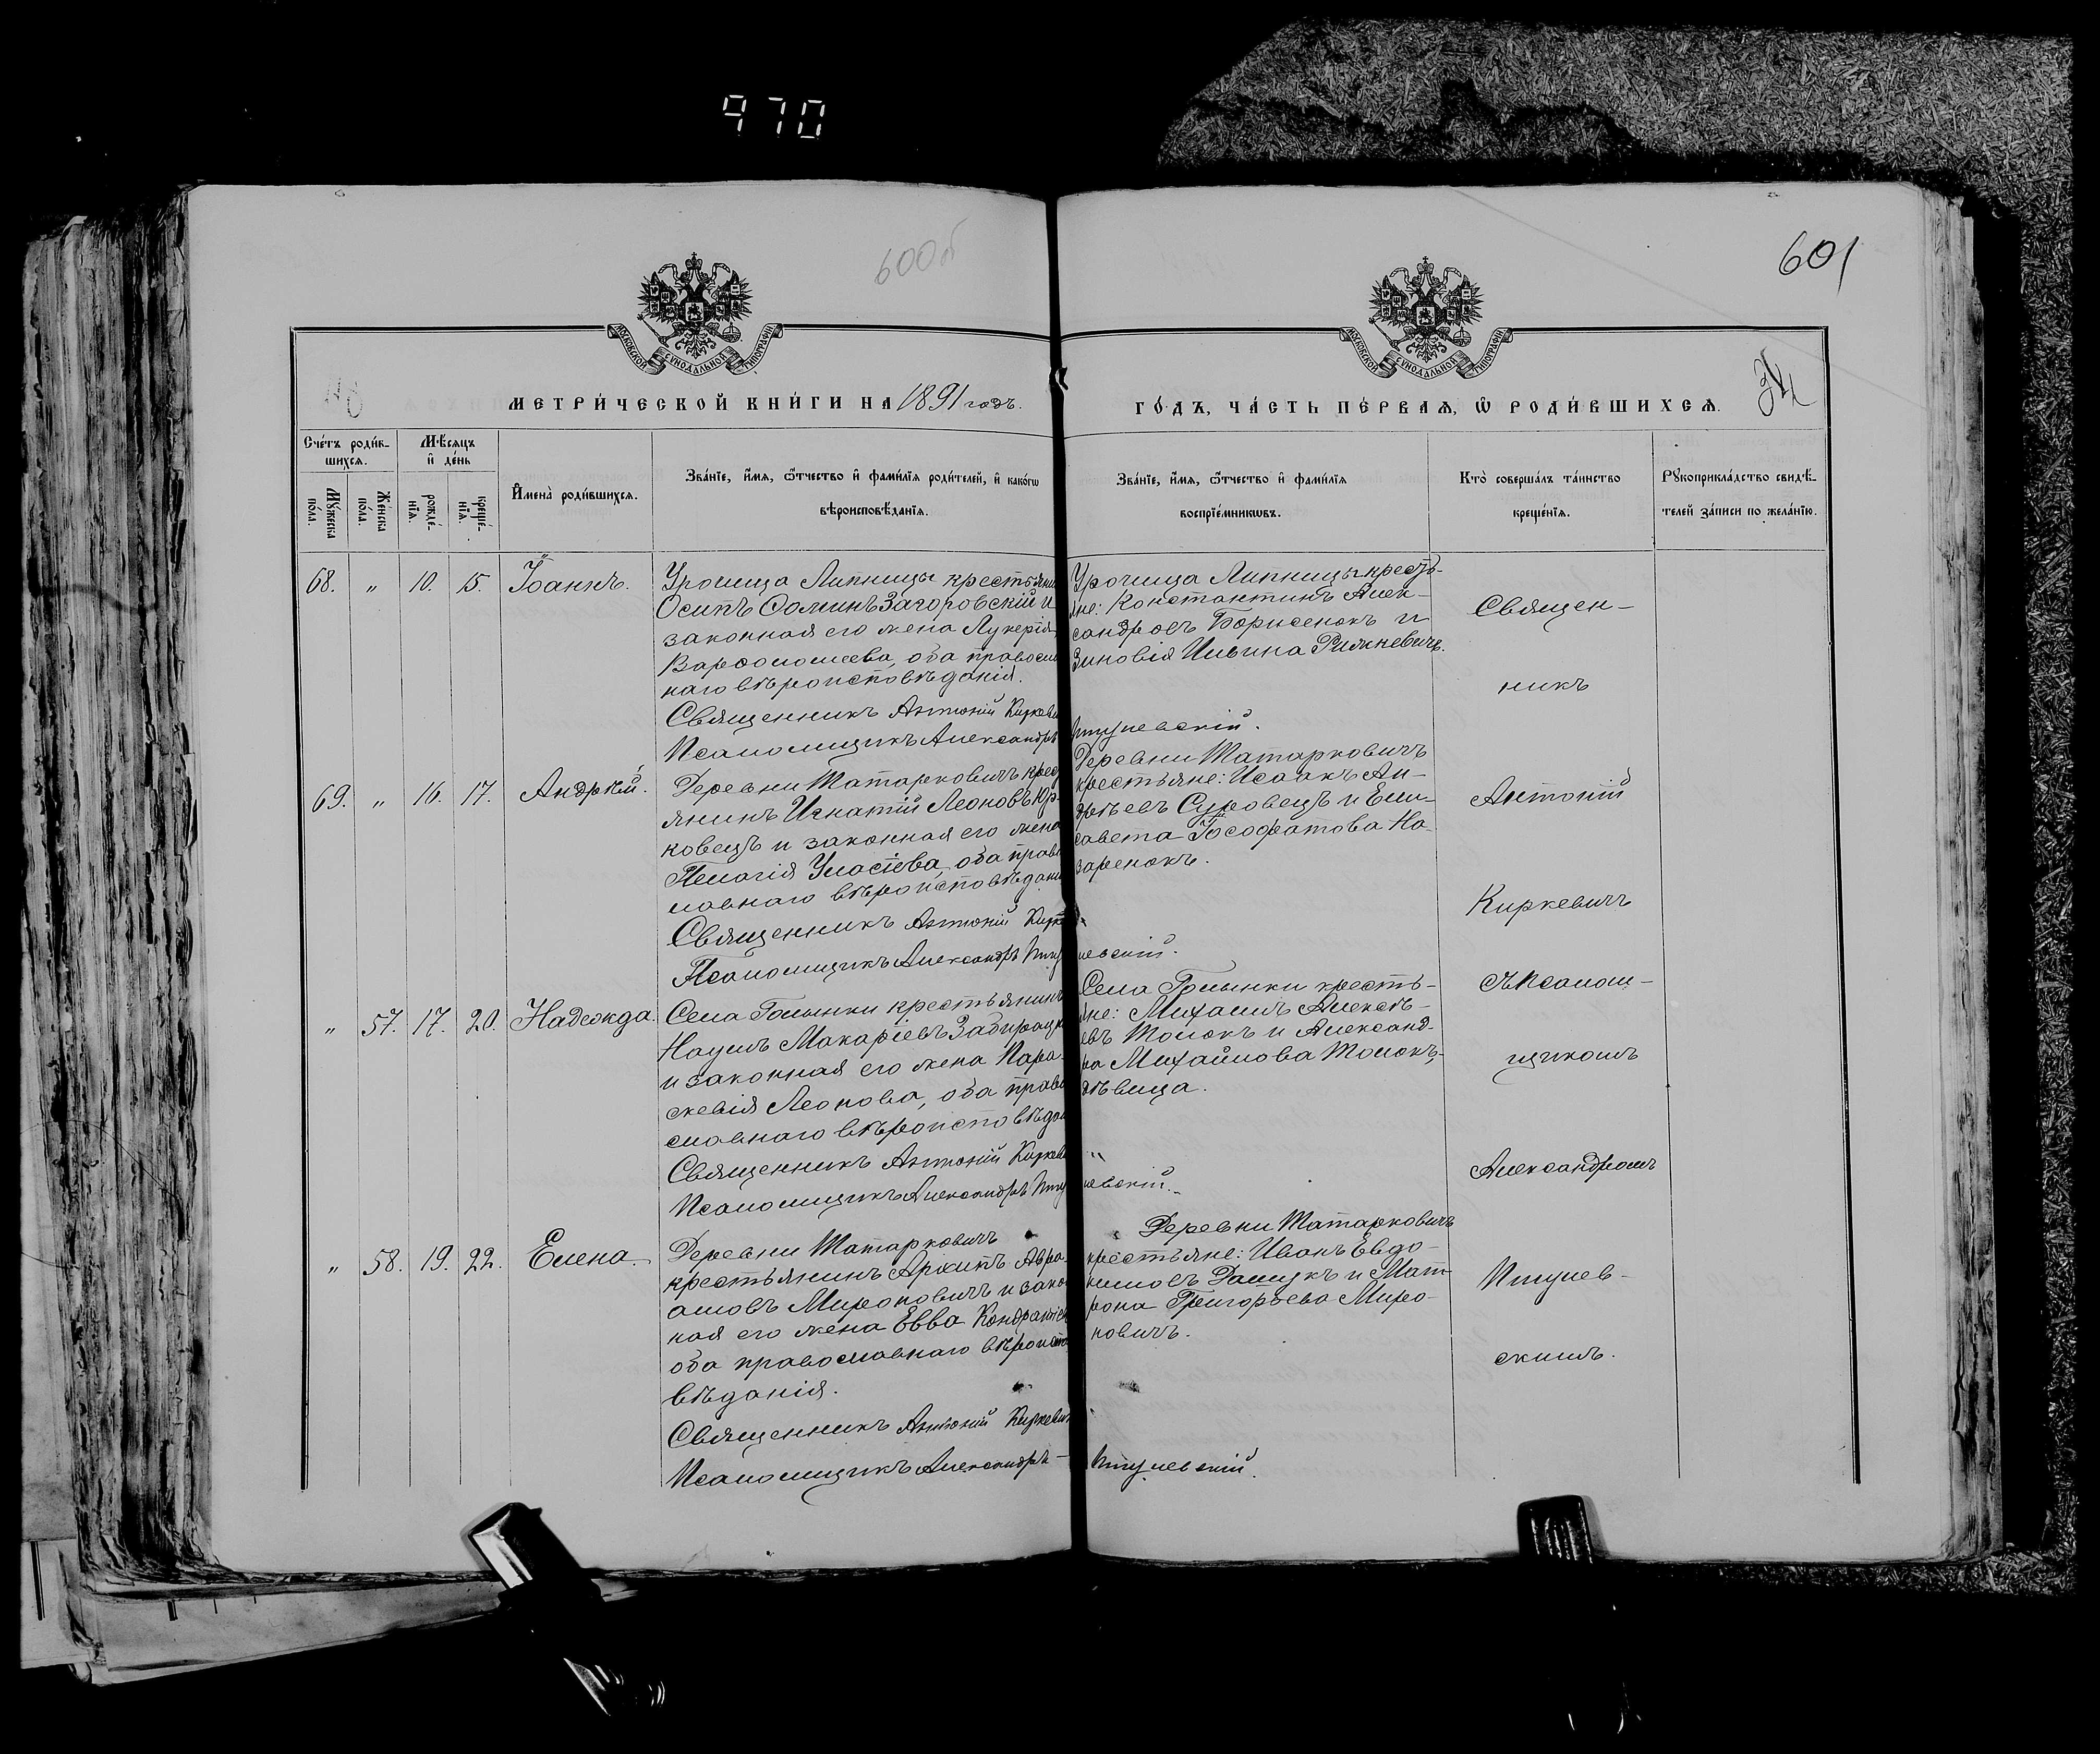 970
600об
601
МОСКОВСКОЙ СѴНОДАЛЬНОЙ ТИПОГРАФІИ
МОСКОВСКОЙ СѴНОДАЛЬНОЙ ТИПОГРАФІИ
34
МЕТРИ́ЧЕСКОЙ КНИ́ГИ НА 1891 годъ.
ГО́ДЪ, ЧА́СТЬ ПЕ́РВАЯ, Ѡ РОДИ́ВШИХСЯ.
Сче́тъ роди́в-
шихся.
Му́жеска по́ла.
Же́нска по́ла.
Мѣ́сяцъ
и҆ де́нь
рожде́-
нїя.
креще́-
нїя.
И҆мена̀ роди́вшихся.
Зва́нїе, и҆́мя, ѻ҆́тчество и҆ фами́лїя роди́телей, и҆ како́гѡ
вѣроисповѣ́данїя.
Зва́нїе, и҆́мя, ѻ҆́тчество и҆ фами́лїя
воспрїе́мникѡвъ.
Кто̀ соверша́лъ та́инство
креще́нїя.
Рꙋкоприкла́дство свидѣ́-
телей за́писи по жела́нїю.
68. " 10. 15. Іоаннъ.
Урочища Липницы крестьянинъ
Осипъ Ѳоминъ Загоровскій и
законная его жена Лукерія
Варѳоломеева, оба правосл
наго вѣроисповѣданія.
Священникъ Антоній Киркеви
Псаломщикъ Александръ Птулевскій.
Урочища Липницы кресть-
яне: Константинъ Алек-
сандровъ Борисенокъ и
Зиновія Ильина
69. " 16. 17. Андрей.
Деревни Татарковичъ крес
янинъ Игнатій Леоновъ Юр-
ковецъ и законная его жена
Пелагія Уласіева, оба прав
лавнаго вѣроисповѣдани
Священникъ Антоній Кирке
Псаломщикъ Александръ Птулевскій.
Деревни Татарковичъ
крестьяне: Исаакъ Ан-
дрѣевъ Суровецъ и Ели-
савета Іософатова На-
заренокъ.
" 57. 17. 20. Надежда.
Села Голынки крестьянинъ
Наумъ Макаріевъ
и законная его жена Пара-
скевія Леонова, оба прав
славнаго вѣроисповѣдан
Священникъ Антоній Киркеви
Псаломщикъ Александръ Птулевскій.
Села Голынки кресть-
яне: Михаилъ Алексѣ-
евъ Толокъ и Александ-
ра Михайлова Толокъ,
дѣвица.
" 58. 19. 22. Елена.
Деревни Татарковичъ
крестьянинъ Архипъ Авра-
амовъ Мироновичъ и закон
ная его жена Евва Кондратіев
оба православнаго вѣроиспо
вѣданія.
Священникъ Антоній Киркевич
Псаломщикъ Александръ Птулевскій.
Деревни Татарковичъ
крестьяне: Иванъ Евдо-
кимовъ и Мат-
рона Григорьева Миро-
новичъ.
Священ-
никъ
Антоній
Киркевичъ
съ псалом-
щикомъ
Александромъ
Птулев-
скимъ.